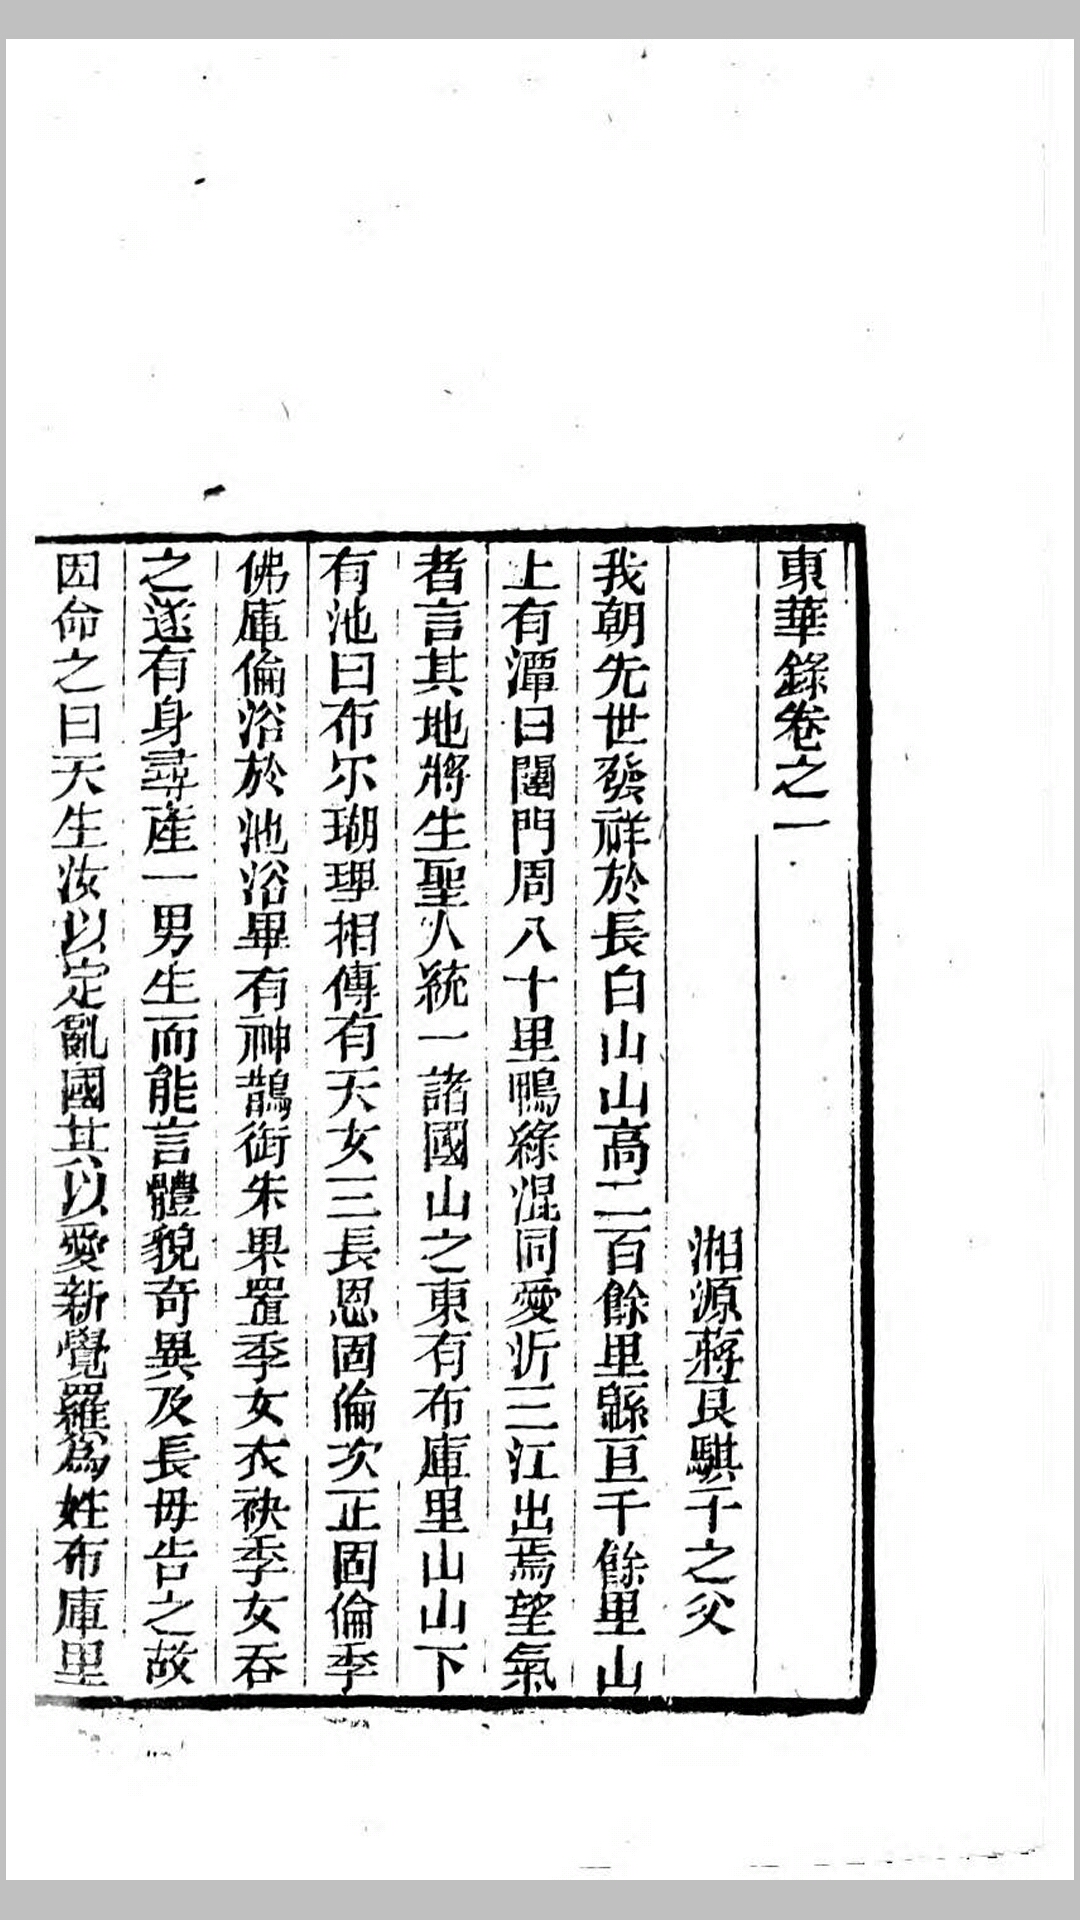 東華錄卷之一
湘源蔣良騏千之父
我朝先世發祥於長白山山高二百餘里緜亘千餘里山
上有潭曰闥門周八十里鴨綠混同愛沂三江出焉望氣
者言其地將生聖人統一諸國山之東有布庫里山山下
有池曰布尔瑚理相傳有天女三長恩固倫次正固倫季
佛庫倫浴於池浴畢有神鵲銜朱果置季女衣袂季女吞
之遂有身尋產一男生而能言體貌奇異及長毋告之故
因命之曰天生汝以定亂國其以愛新覺羅爲姓布庫里